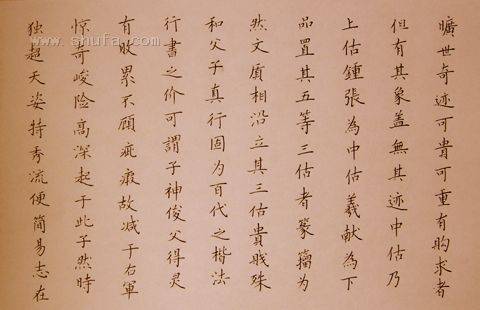 曠世奇迹可貴可重有购求者
但有其象盖無其迹中估乃
上估鍾張為中估羲献為下
品置其五等三估者篆籀为
然文质相沿立其三估貴賎殊
和父子真行固为百代之楷法
行書之价可謂子神俊父得灵
有败累不顾疵瑕故减于右軍
惊奇峻险高深起于此子然時
独超天姿特秀流便簡易志在
www.shufa.com